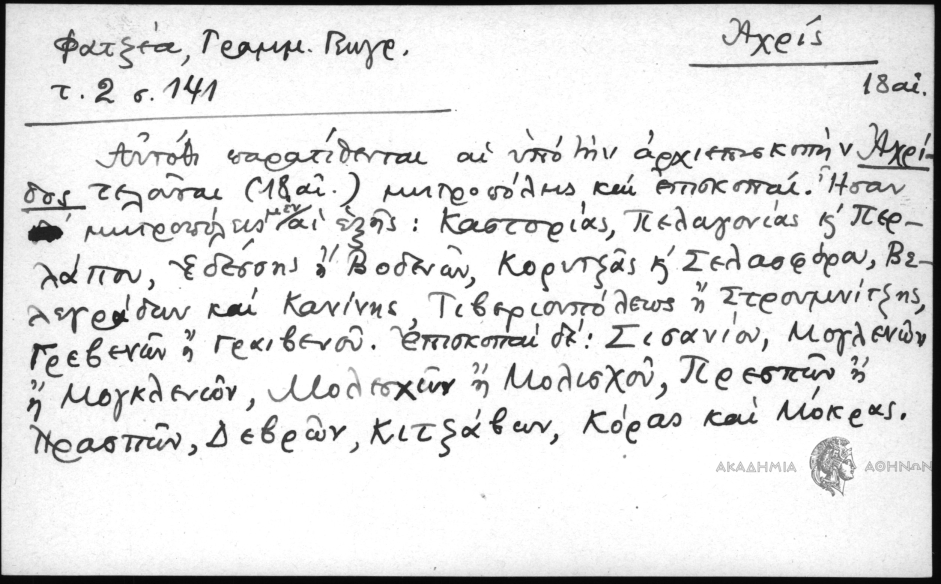 Φατζέα, Γραμμ. Πωγρ.
τ. 2 σ. 141
Ἀχρίς
18 αἰ.
Αὐτόθι παρατίθενται αἱ ὑπὸ τὴν ἀρχιεπισκοπὴν Ἀχρί-
δος τελοῦσαι (18 αἰ.) μητροπόλεις καὶ ἐπισκοπαί. Ἦσαν
μητροπόλεις μὲν αἱ ἑξῆς: Καστορίας, Πελαγονίας κ' Περ-
λάπου, Ἐδέσσης ἢ Βοδενῶν, Κορυτζᾶς κ' Σελασφόρου, Βε-
λεγράδων καὶ Κανίνης, Τιβεριουπόλεως ἢ Στρουμνίτζης,
Γρεβενῶν ἢ Γραιβενοῦ. Ἐπισκοπαὶ δέ: Σισανίου, Μογλενῶν
ἢ Μογκλενιῶν, Μολεσχῶν ἢ Μολισχοῦ, Πρεσπῶν ἢ
Πρασπῶν, Δεβρῶν, Κιτζάβων, Κόρας καὶ Μόκρας.
ΑΚΑΔΗΜΙΑ ΑΘΗΝΩΝ